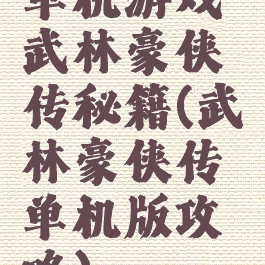 单机游戏
武林豪侠
传秘籍(武
林豪侠传
单机版攻
略)